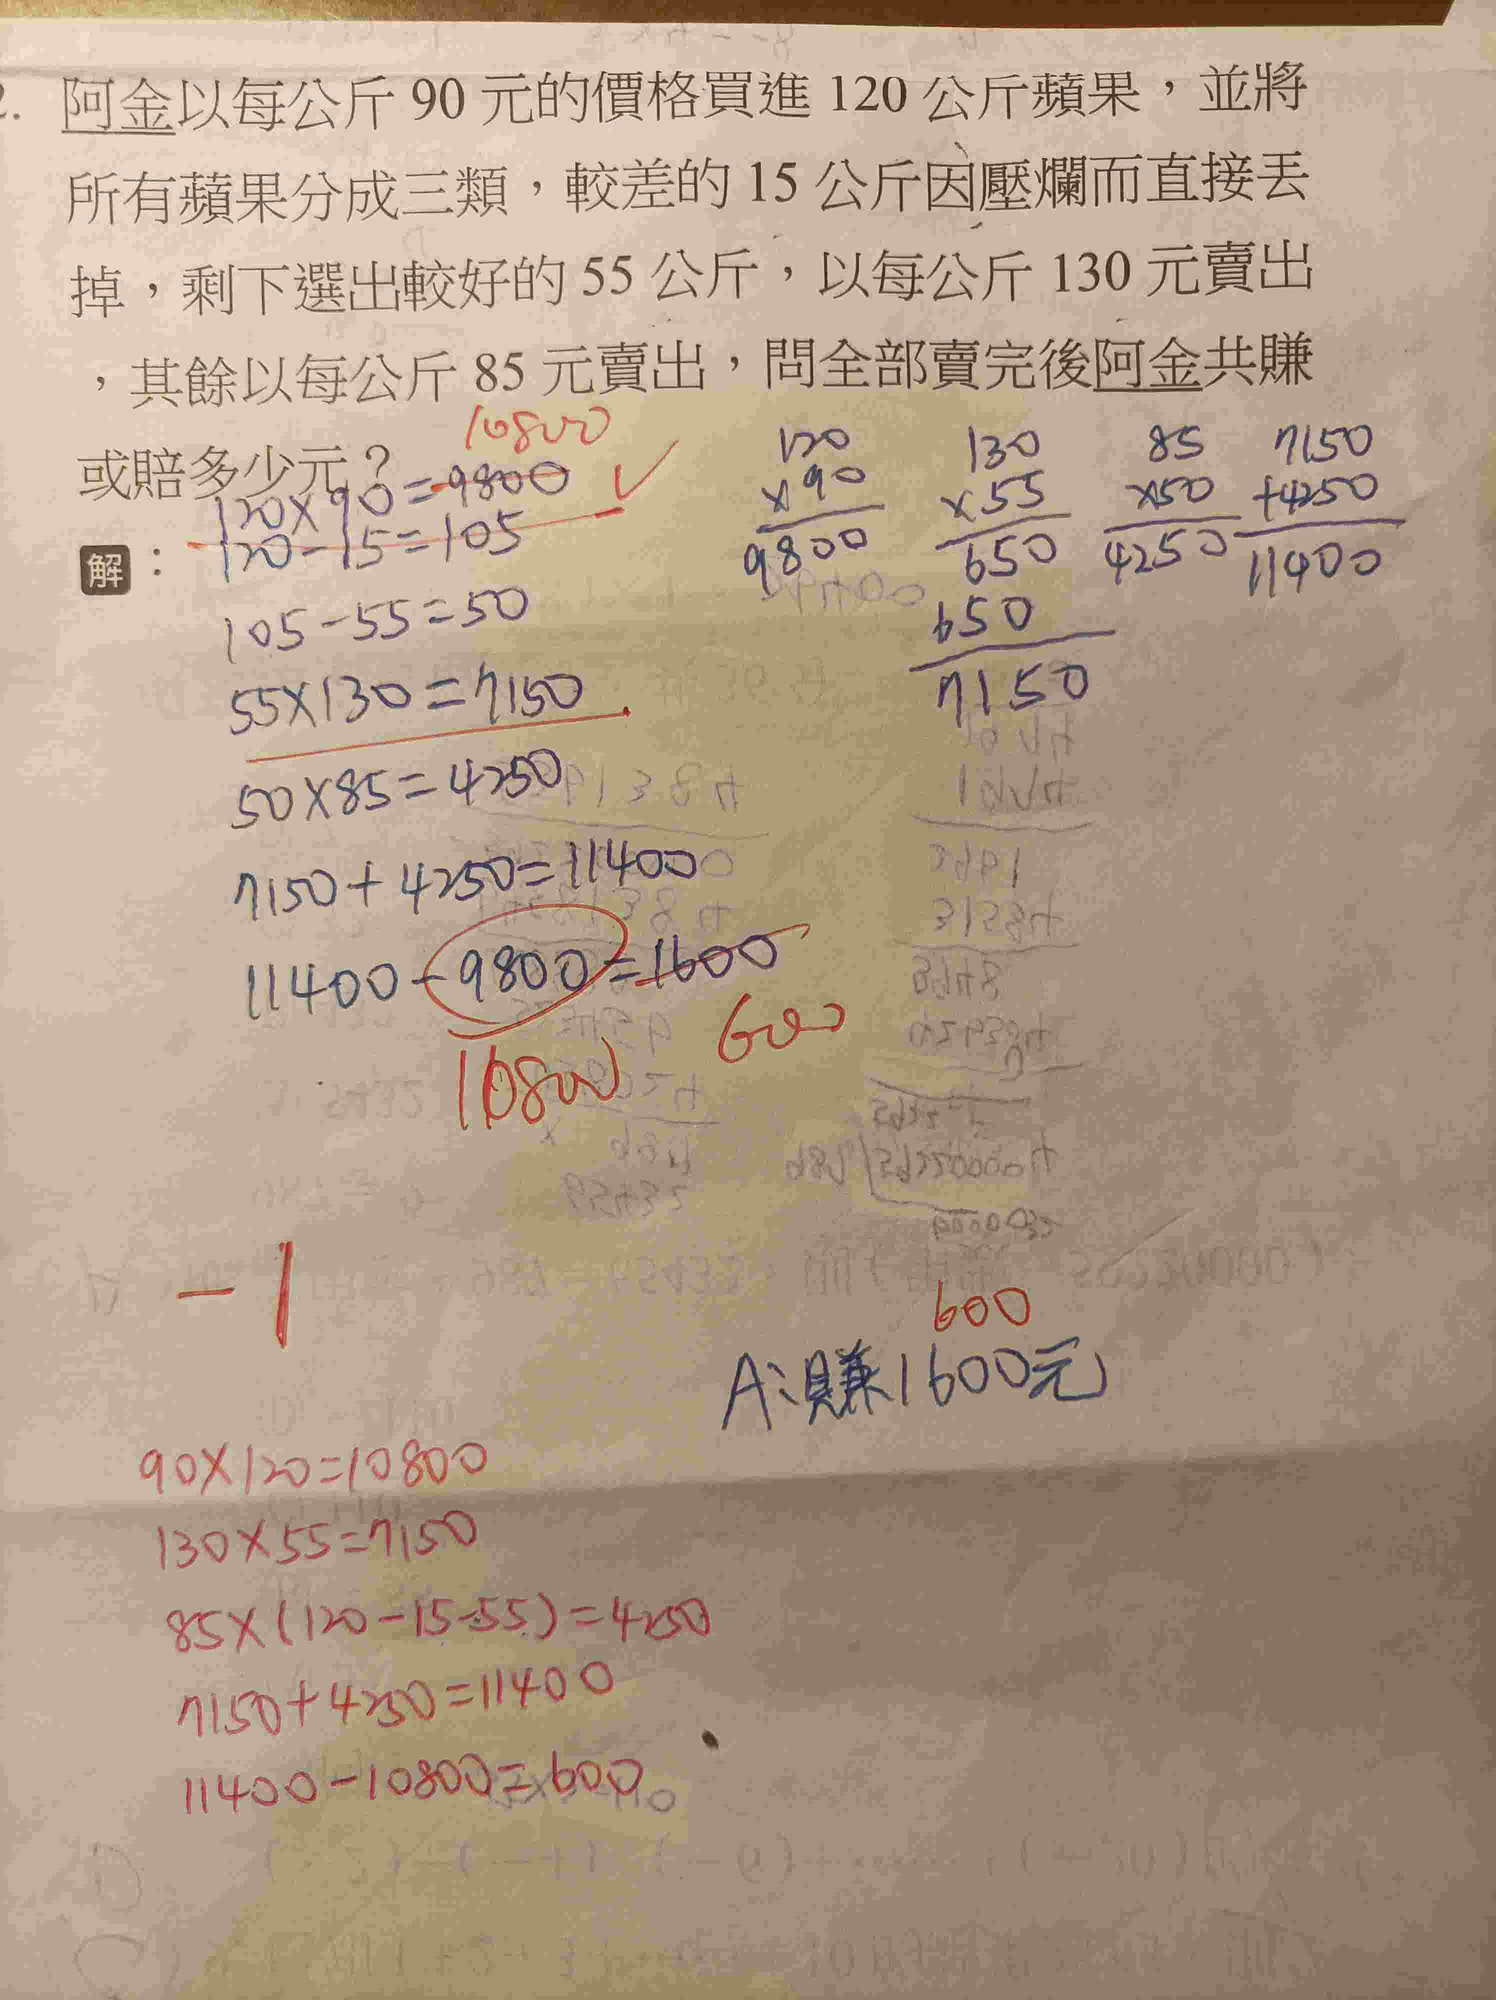 2. 阿金以每公斤 90 元的價格買進 120 公斤蘋果，並將
所有蘋果分成三類，較差的 15 公斤因壓爛而直接丟
掉，剩下選出較好的 55 公斤，以每公斤 130 元賣出
，其餘以每公斤 85 元賣出，問全部賣完後阿金共賺
或賠多少元？
10800
120×90=9800
解：
120-15=105
105-55=50
55×130=7150
50×85=4250
7150+4250=11400
11400-9800=1600
10800
600
120
×90
9800
130
×55
650
650
7150
85
×50
4250
7150
+4250
11400
-1
600
A:賺1600元
90×120=10800
130×55=7150
85×(120-15-55)=4250
7150+4250=11400
11400-10800=600